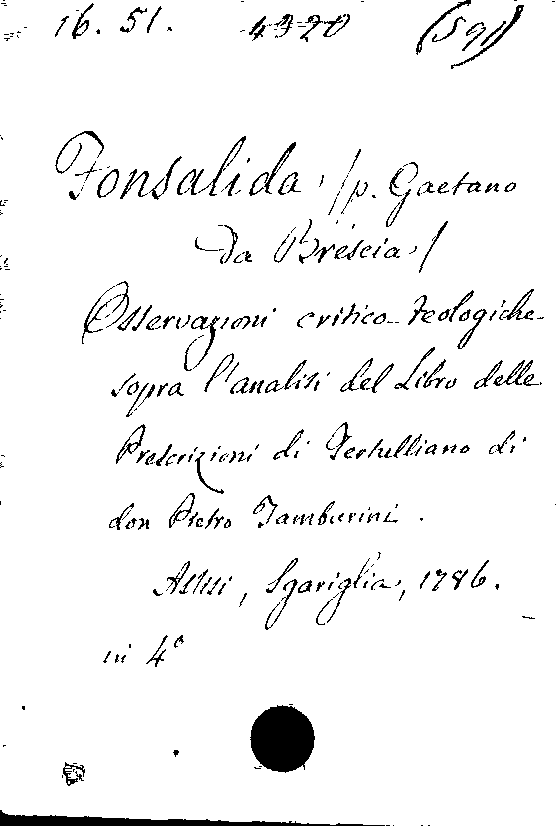 16. 51. 4320 (591)
Fonsalida, /p. Gaetano
da Brescia,/
Osservazioni critico-teologiche
sopra l'analisi del Libro delle
Prescrizioni di Tertulliano di
don Pietro Tamburini.
Assisi, Sgariglia, 1786.
in 4°